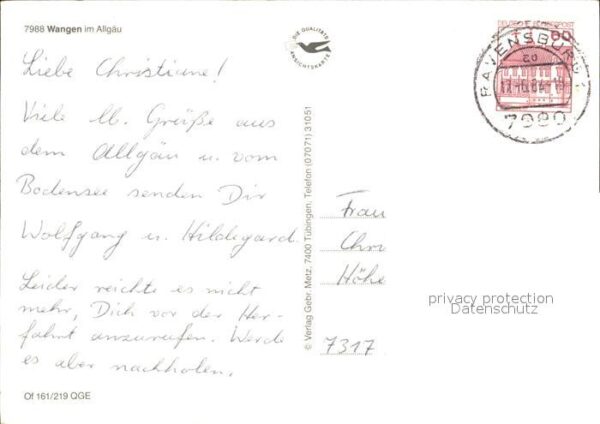 7988 Wangen im Allgäu
DIE QUALITÄTS
ANSICHTSKARTE
Liebe Christiane!
Viele ll. Grüße aus
dem Allgäu u. vom
Bodensee senden Dir
Wolfgang u. Hildegard.
Leider reichte es nicht
mehr, Dich vor der Her-
fahrt anzurufen. Werde
es aber nachholen.
Of 161/219 QGE
© Verlag Gebr. Metz, 7400 Tübingen, Telefon (07071) 31051
DEUTSCHE BUNDESPOST
60
RAVENSBURG 1
7980
Frau
Chri
Höhe
7317
privacy protection
Datenschutz